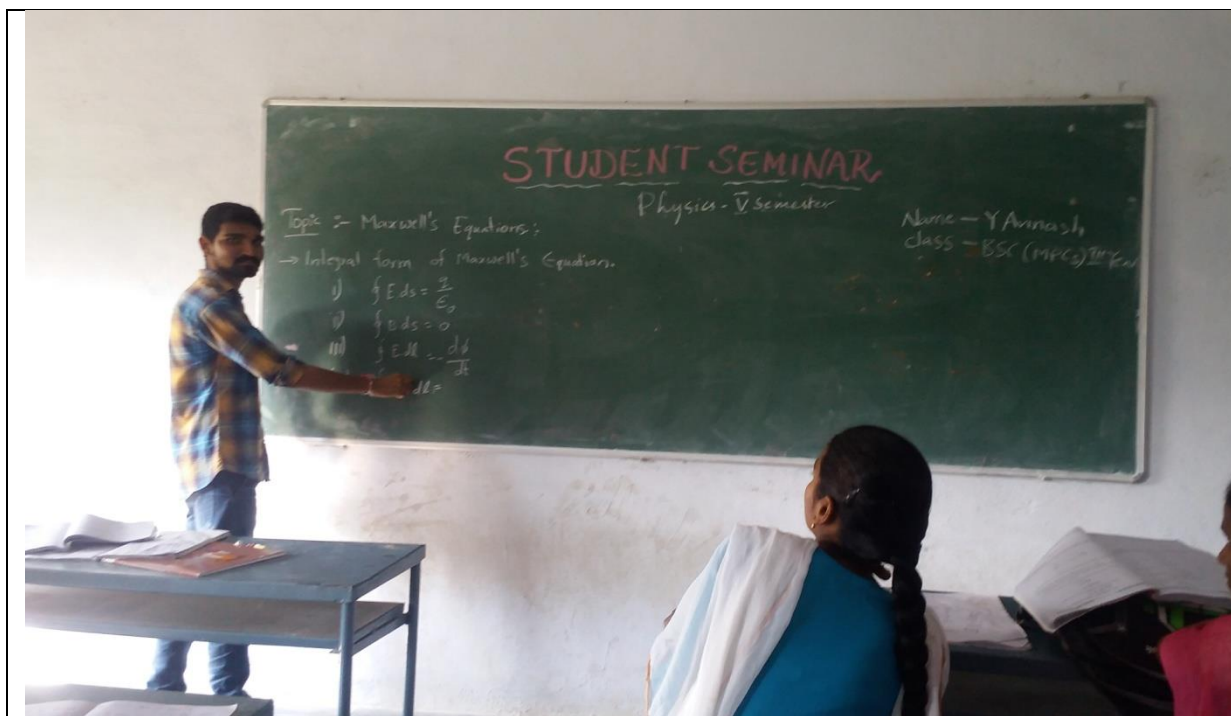 STUDENT SEMINAR
Physics - V Semester
Name - Y Avinash
Class - BSC (MPCs) III Year
Topic :- Maxwell's Equations:
→ Integral form of Maxwell's Equation.
i) ∮ E ds = q/ε₀
ii) ∮ B ds = 0
iii) ∮ E dl = - dϕ/dt
dl =